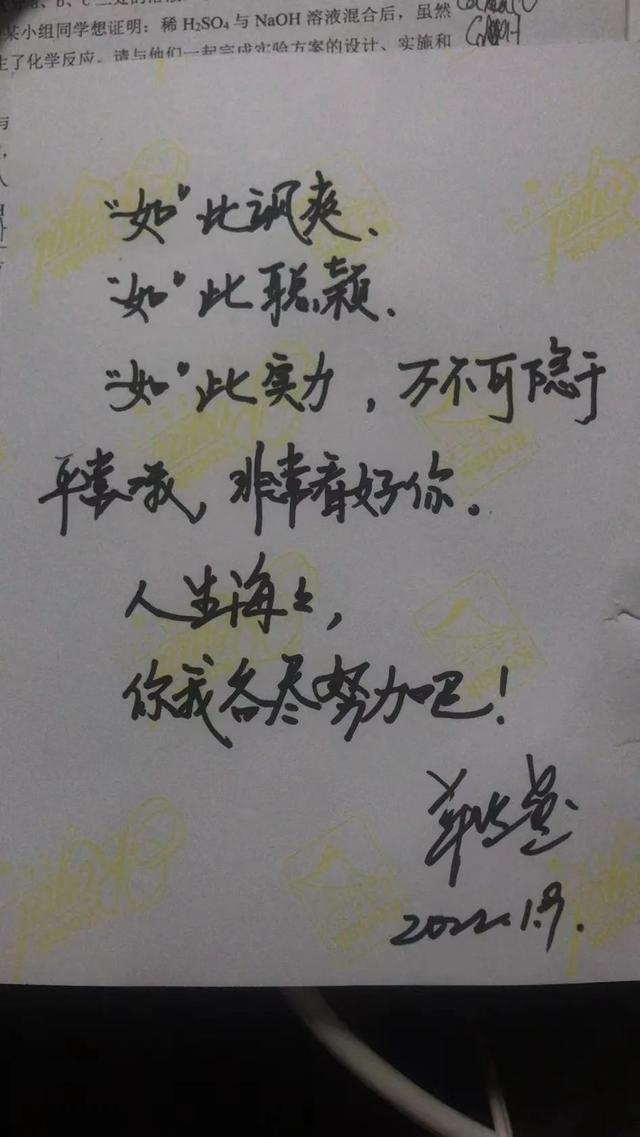 某小组同学想证明：稀 H₂SO₄ 与 NaOH 溶液混合后，虽然
生了化学反应。请与他们一起完成实验方案的设计、实施和
与
“如”此飒爽、
“如”此聪颖、
“如”此实力，万不可隐于
平常哦，非常看好你。
人生海上，
你我各尽努力吧！
2022.1.9.
Kodak